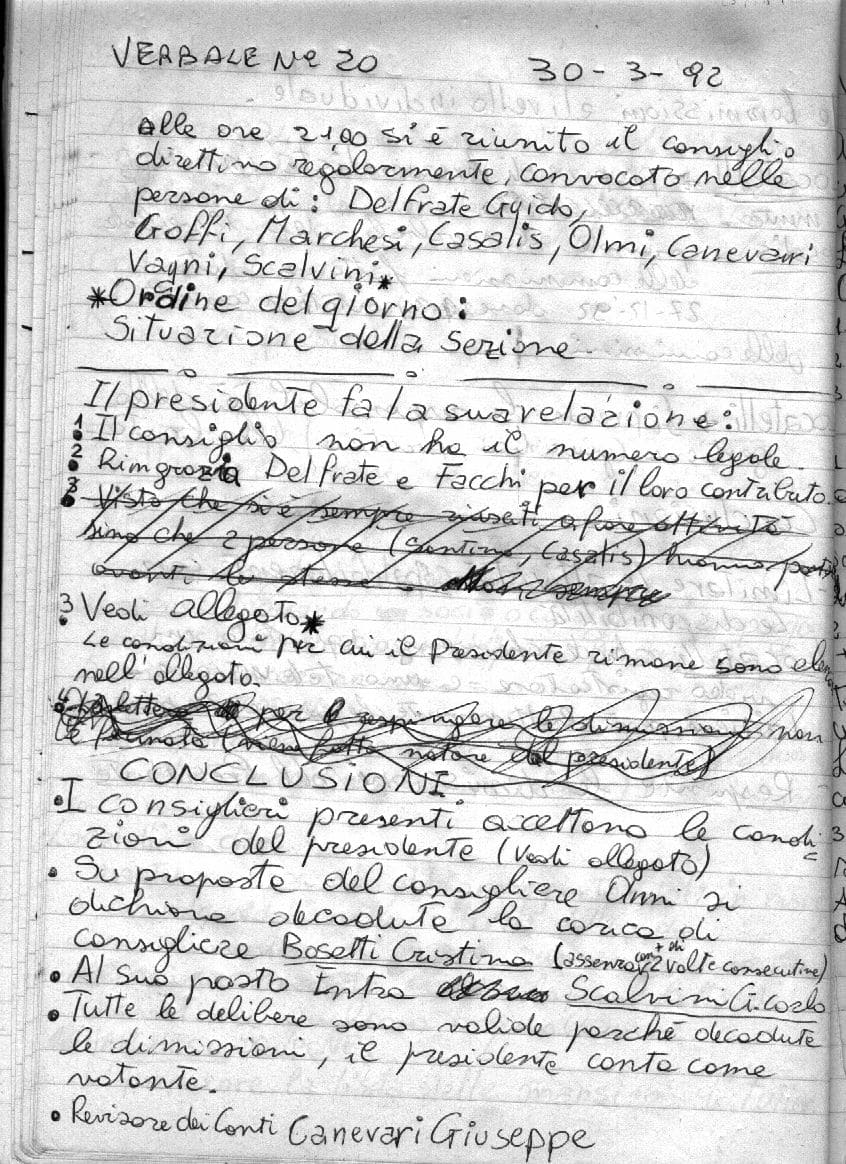 VERBALE No 20 30-3-92
Alle ore 21,00 si è riunito il consiglio
direttivo regolarmente, convocato nelle
persone di: Delfrate Guido,
Goffi, Marchesi, Casalis, Olmi, Canevari
Vagni, Scalvini*
*Ordine del giorno:
Situazione della Sezione
Il presidente fa la sua relazione:
1 Il consiglio non ha il numero legale.
2 Ringrazia Delfrate e Facchi per il loro contributo.
3 Visto che si è sempre riusciti a fare attività
sino che 2 persone (Santino, Casalis) hanno
avanti la stessa
3 Vedi allegato*
Le condizioni per cui il Presidente rimane sono
nell'allegato.
per respingere le dimissioni non
(viene fatto notare dal presidente)
CONCLUSIONI
• I consiglieri presenti accettano le condi=
zioni del presidente (Vedi allegato)
• Su proposta del consigliere Olmi si
dichiara decaduta la carica di
consigliere Bosetti Cristina (assenza con + di 2 volte consecutive)
• Al suo posto Entra Scalvini G.carlo
• Tutte le delibere sono valide perché decadute
le dimissioni, il presidente conta come
votante.
• Revisore dei Conti Canevari Giuseppe